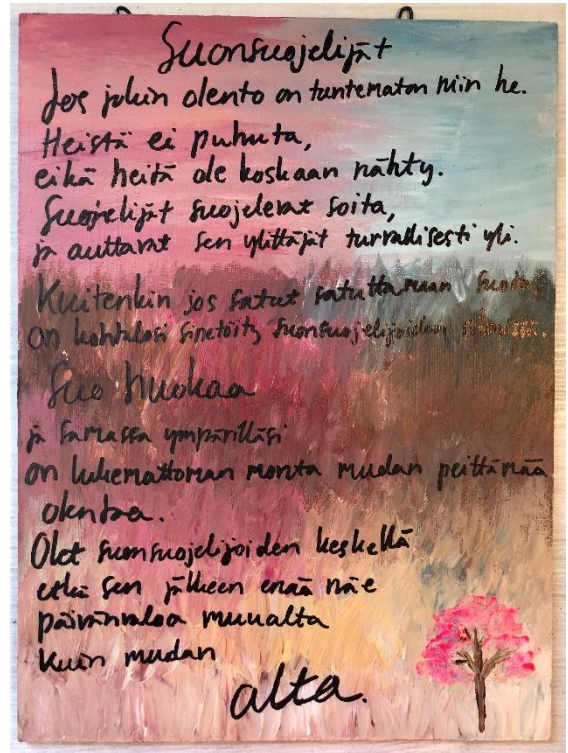 Suonsuojelijat
Jos jokin olento on tuntematon niin he.
Heistä ei puhuta,
eikä heitä ole koskaan nähty.
Suojelijat suojelevat soita,
ja auttavat sen ylittäjät turvallisesti yli.
Kuitenkin jos satut satuttamaan suota,
on kohtalosi sinetöity suonsuojelijoiden silmissä.
Suo huokaa
ja samassa ympärilläsi
on lukemattoman monta mudan peittämää
olentoa.
Olet suonsuojelijoiden keskellä
etkä sen jälkeen enää näe
päivänvaloa muualta
kuin mudan
alta.